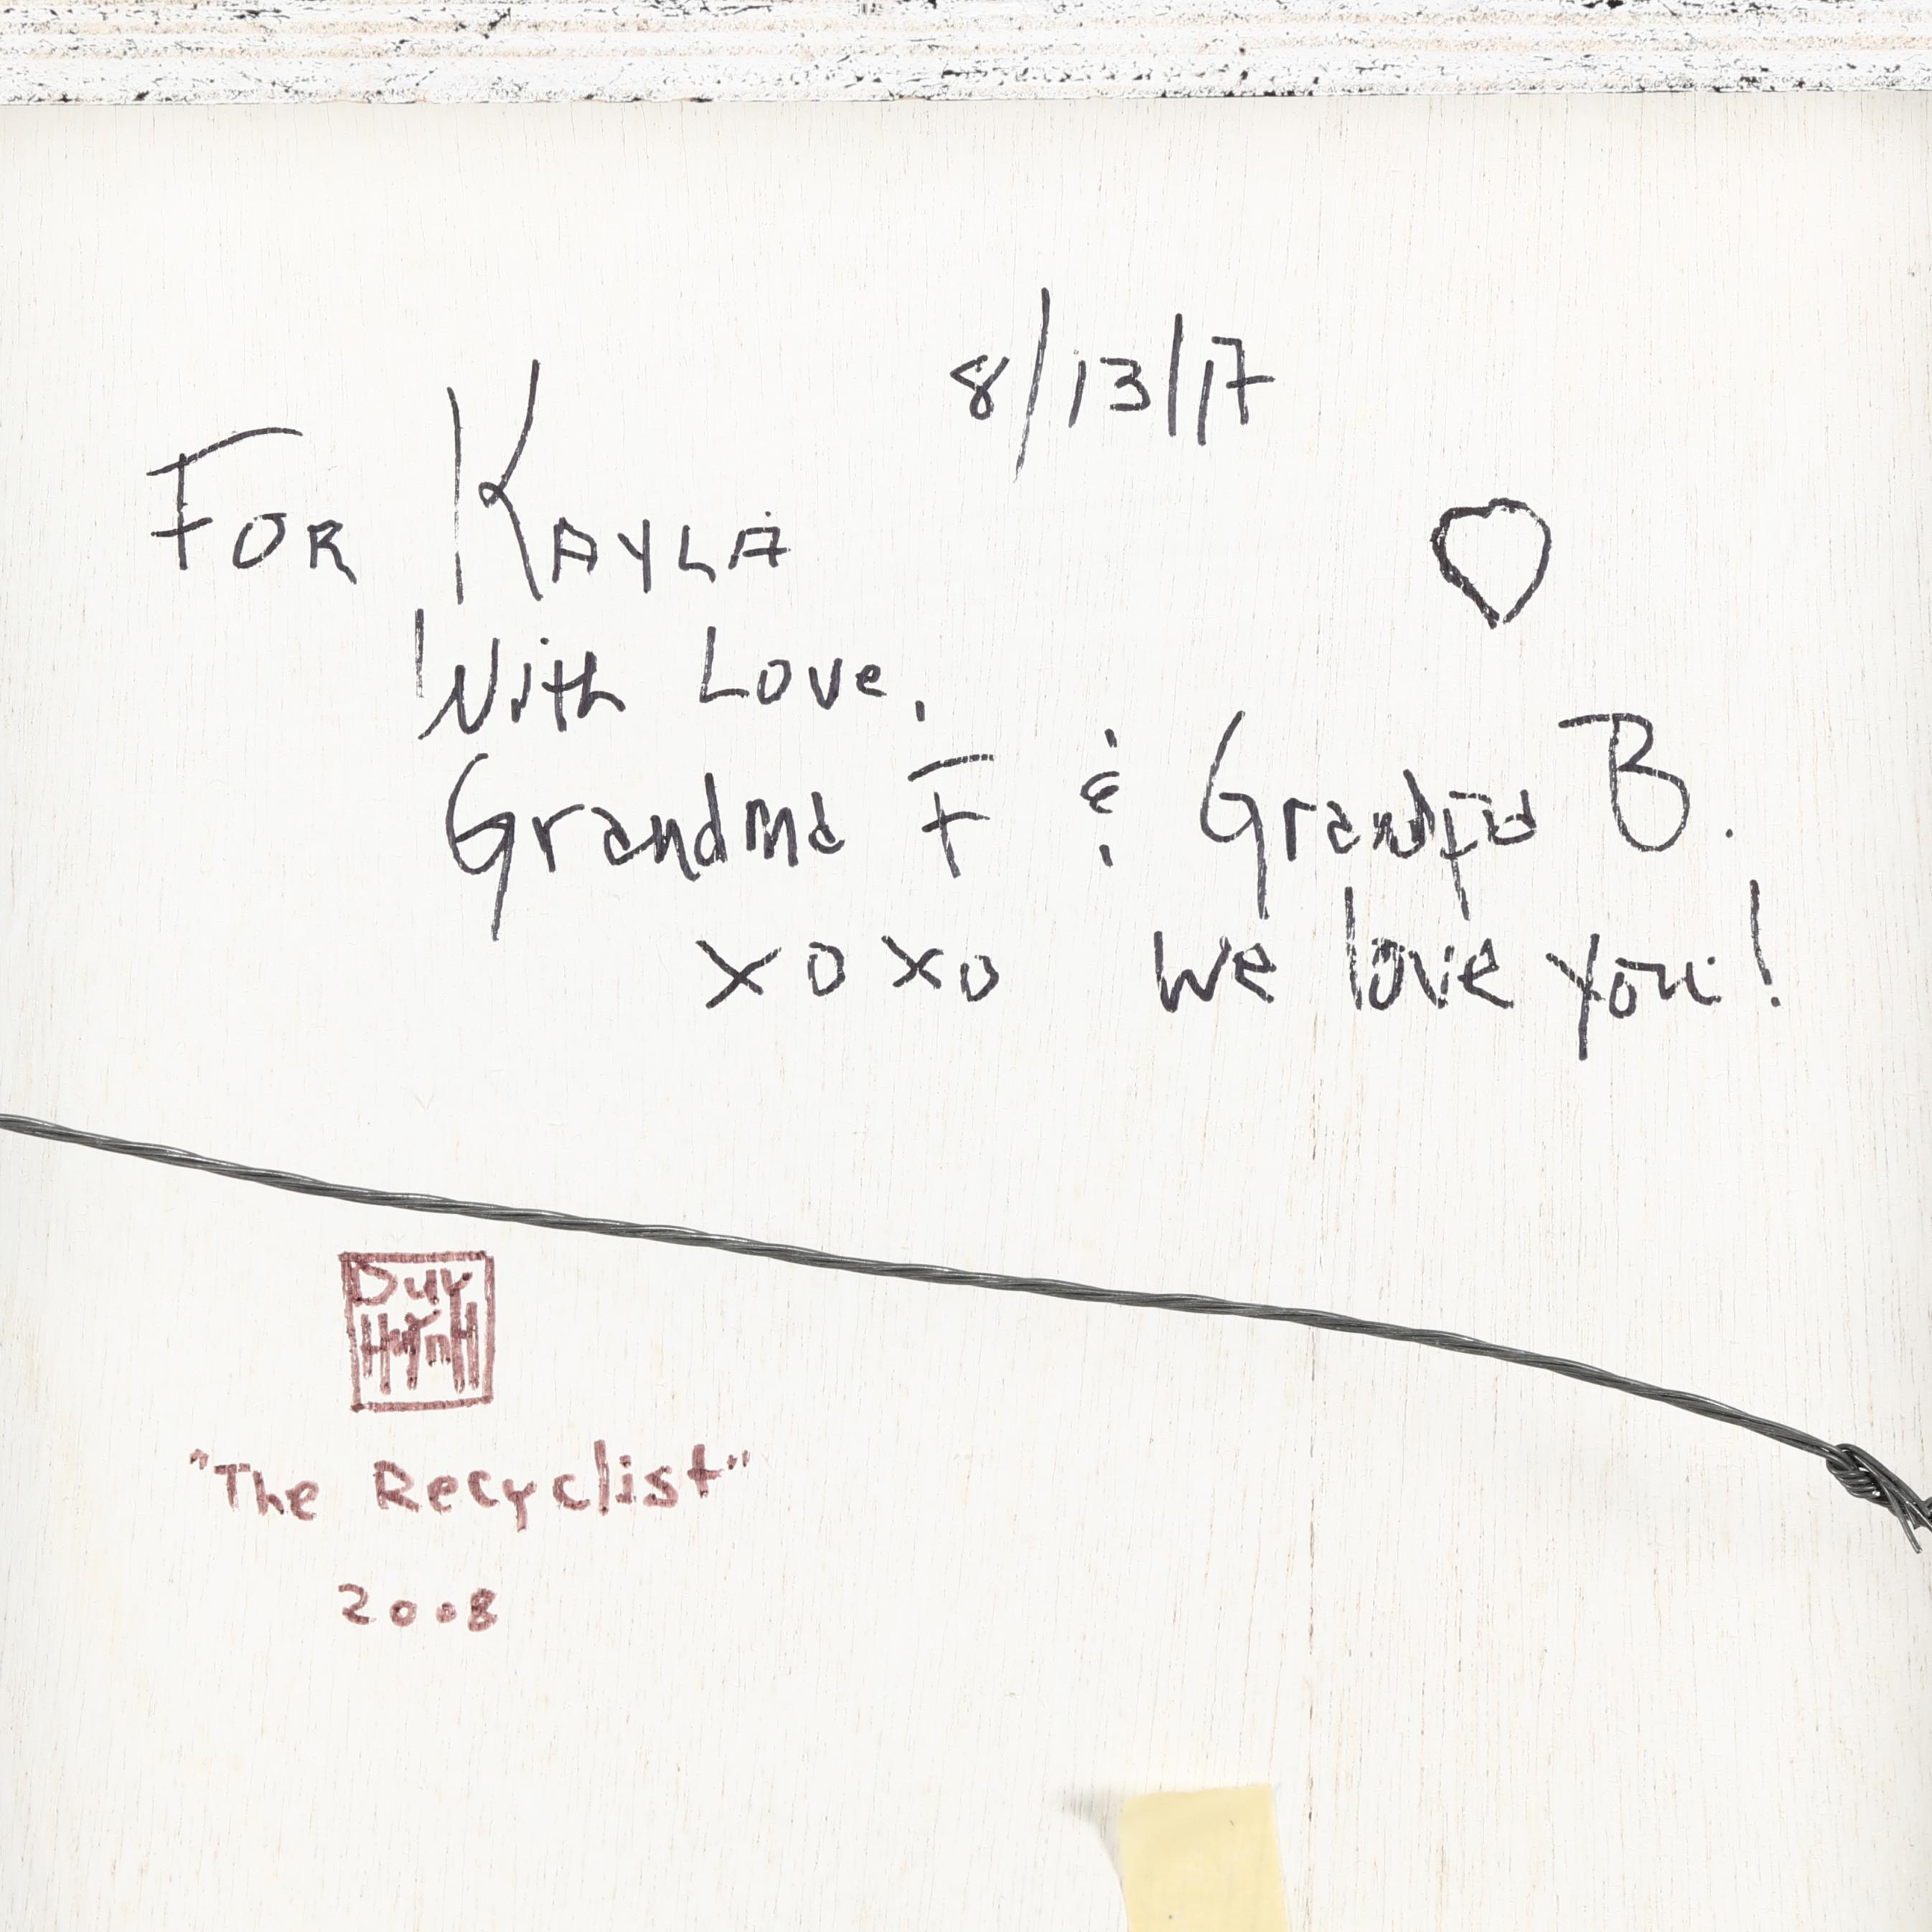 8/13/17
For Kayla
With Love,
Grandma F & Grandpa B.
xoxo we love you!
Duy
Huynh
"The Recyclist"
2008